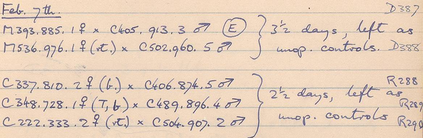 Feb. 7th. D387
M393.885.1♀ × C405.913.3♂ Ⓔ } 3½ days, left as
M536.976.1♀(rt.) × C502.960.5♂ } unop. controls. D388
C337.810.2♀(b.) × C406.874.5♂ } R288
C348.728.1♀(T,b) × C489.896.4♂ } 2½ days, left as R289
C222.333.2♀(rt.) × C504.907.2♂ } unop. controls R290